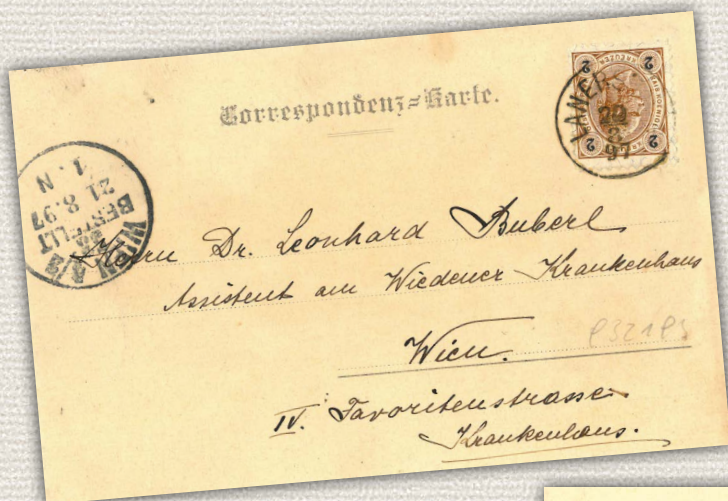 Correspondenz=Karte.
2 2
KREUZER
2 2
LANER
20
8
97
WIEN 4/2
BESTELLT
21.8.97
1.N
Herrn Dr. Leonhard Buberl
Assistent am Wiedener Krankenhaus
Wien.
IV. Favoritenstrasse
Krankenhaus.